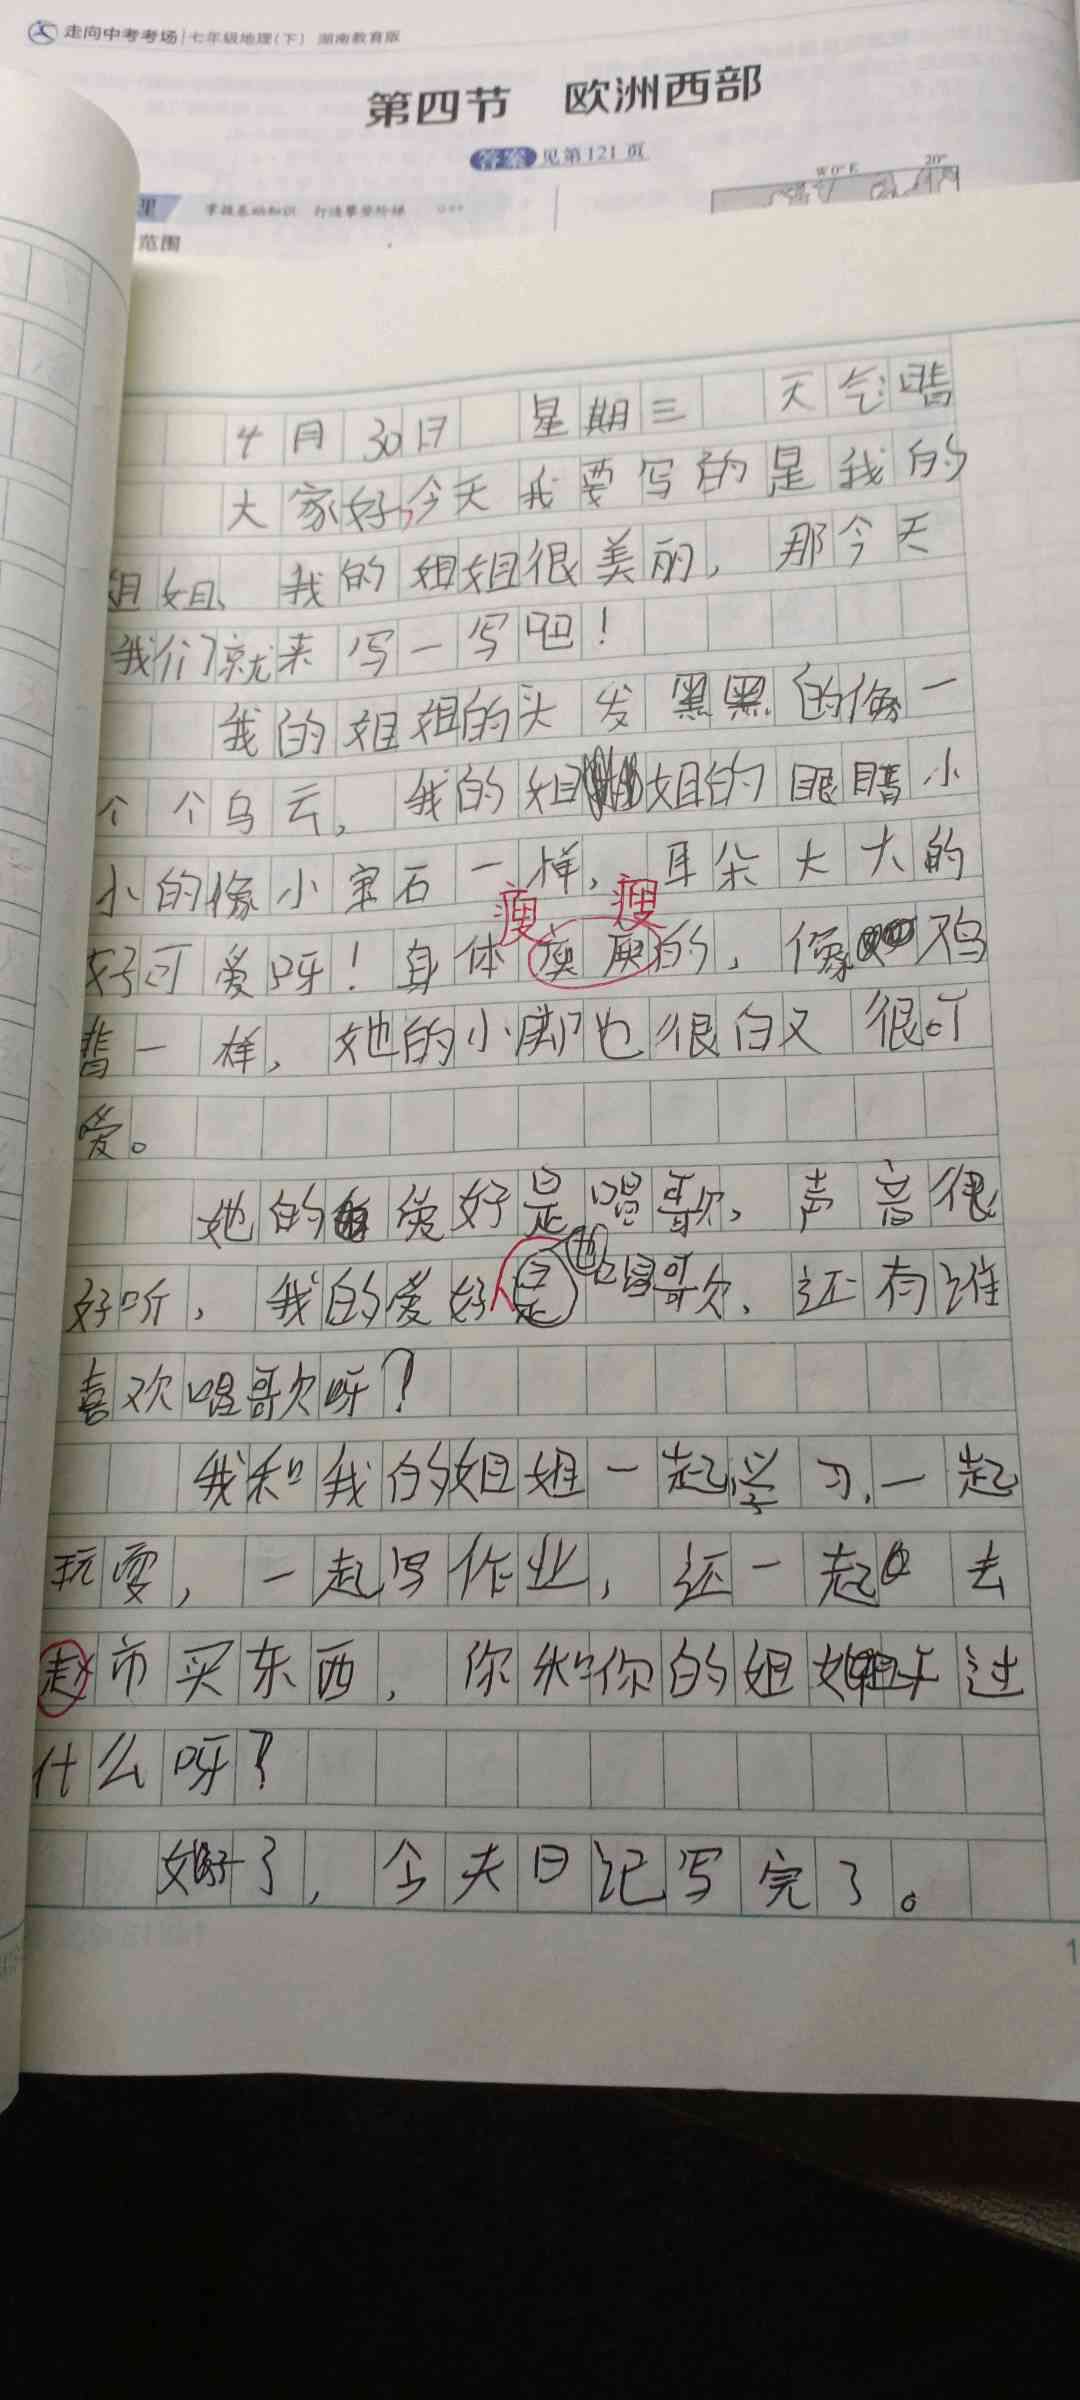 走向中考考场 七年级地理(下) 湖南教育版
第四节 欧洲西部
答案 见第121页
W 0° E 20°
理 掌握基础知识 行远攀登阶梯
范围
4月30日 星期三 天气晴
大家好,今天我要写的是我的
姐姐、我的姐姐很美丽,那今天
我们就来写一写吧!
我的姐姐的头发黑黑的像一
个个乌云,我的姐姐的眼睛小
小的像小宝石一样,耳朵大大的
瘦 瘦
好可爱呀!身体的,像鸡
一样,她的小脚也很白又很可
爱。
她的爱好是唱歌、声音很
好听,我的爱好是也唱歌、还有谁
喜欢唱歌呀?
我和我的姐姐一起学习、一起
玩耍,一起写作业,还一起去
市买东西,你和你的姐姐干过
什么呀?
好了,今天日记写完了。
1